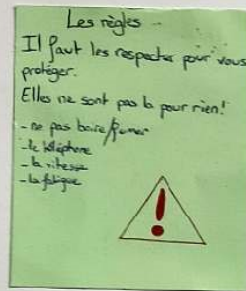 Les règles
Il faut les respecter pour vous
protéger.
Elles ne sont pas la pour rien!
- ne pas boire/fumer
- le téléphone
- la vitesse
- la fatigue
!